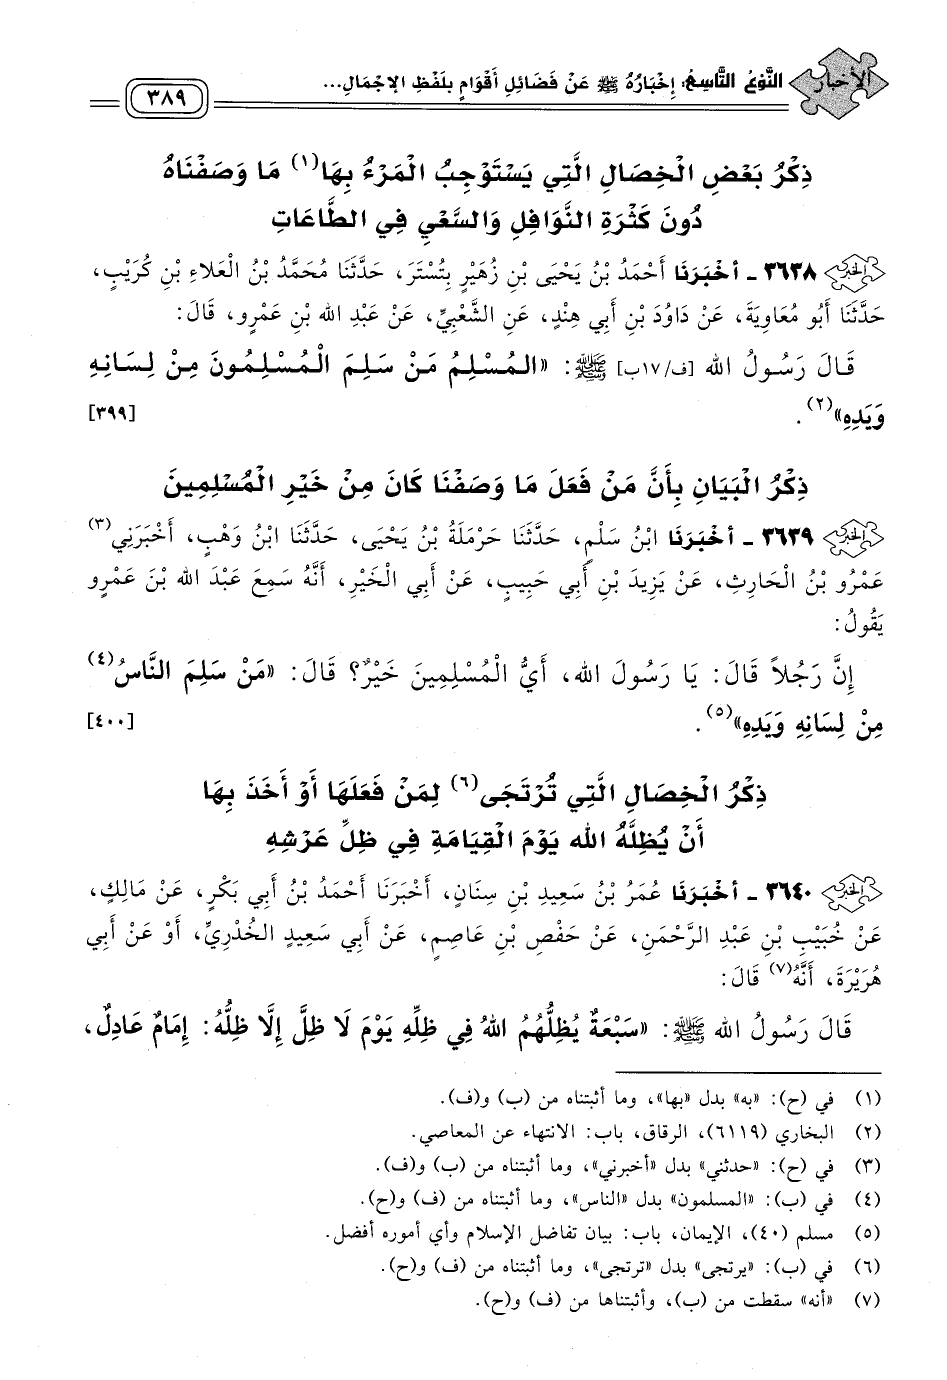 الأخبار النَّوْعُ التَّاسِعُ: إِخْبَارُهُ ﷺ عَنْ فَضَائِلِ أَقْوَامٍ بِلَفْظِ الإِجْمَالِ... ٣٨٩
ذِكْرُ بَعْضِ الْخِصَالِ الَّتِي يَسْتَوْجِبُ الْمَرْءُ بِهَا(١) مَا وَصَفْنَاهُ
دُونَ كَثْرَةِ النَّوَافِلِ وَالسَّعْيِ فِي الطَّاعَاتِ
٣٦٣٨ - أَخْبَرَنَا أَحْمَدُ بْنُ يَحْيَى بْنِ زُهَيْرٍ بِتُسْتَرَ، حَدَّثَنَا مُحَمَّدُ بْنُ الْعَلَاءِ بْنِ كُرَيْبٍ،
حَدَّثَنَا أَبُو مُعَاوِيَةَ، عَنْ دَاوُدَ بْنِ أَبِي هِنْدٍ، عَنِ الشَّعْبِيِّ، عَنْ عَبْدِ الله بْنِ عَمْرٍو، قَالَ:
قَالَ رَسُولُ الله [ف/١٧ب] ﷺ: «الْمُسْلِمُ مَنْ سَلِمَ الْمُسْلِمُونَ مِنْ لِسَانِهِ
وَيَدِهِ»(٢). [٣٩٩]
ذِكْرُ الْبَيَانِ بِأَنَّ مَنْ فَعَلَ مَا وَصَفْنَا كَانَ مِنْ خَيْرِ الْمُسْلِمِينَ
٣٦٣٩ - أَخْبَرَنَا ابْنُ سَلْمٍ، حَدَّثَنَا حَرْمَلَةُ بْنُ يَحْيَى، حَدَّثَنَا ابْنُ وَهْبٍ، أَخْبَرَنِي(٣)
عَمْرُو بْنُ الْحَارِثِ، عَنْ يَزِيدَ بْنِ أَبِي حَبِيبٍ، عَنْ أَبِي الْخَيْرِ، أَنَّهُ سَمِعَ عَبْدَ الله بْنَ عَمْرٍو
يَقُولُ:
إِنَّ رَجُلاً قَالَ: يَا رَسُولَ الله، أَيُّ الْمُسْلِمِينَ خَيْرٌ؟ قَالَ: «مَنْ سَلِمَ النَّاسُ(٤)
مِنْ لِسَانِهِ وَيَدِهِ»(٥). [٤٠٠]
ذِكْرُ الْخِصَالِ الَّتِي تُرْتَجَى(٦) لِمَنْ فَعَلَهَا أَوْ أَخَذَ بِهَا
أَنْ يُظِلَّهُ الله يَوْمَ الْقِيَامَةِ فِي ظِلِّ عَرْشِهِ
٣٦٤٠ - أَخْبَرَنَا عُمَرُ بْنُ سَعِيدِ بْنِ سِنَانٍ، أَخْبَرَنَا أَحْمَدُ بْنُ أَبِي بَكْرٍ، عَنْ مَالِكٍ،
عَنْ خُبَيْبِ بْنِ عَبْدِ الرَّحْمَنِ، عَنْ حَفْصِ بْنِ عَاصِمٍ، عَنْ أَبِي سَعِيدٍ الْخُدْرِيِّ، أَوْ عَنْ أَبِي
هُرَيْرَةَ، أَنَّهُ(٧) قَالَ:
قَالَ رَسُولُ الله ﷺ: «سَبْعَةٌ يُظِلُّهُمُ اللهُ فِي ظِلِّهِ يَوْمَ لَا ظِلَّ إِلَّا ظِلُّهُ: إِمَامٌ عَادِلٌ،
(١) في (ح): «به» بدل «بها»، وما أثبتناه من (ب) و(ف).
(٢) البخاري (٦١١٩)، الرقاق، باب: الانتهاء عن المعاصي.
(٣) في (ح): «حدثني» بدل «أخبرني»، وما أثبتناه من (ب) و(ف).
(٤) في (ب): «المسلمون» بدل «الناس»، وما أثبتناه من (ف) و(ح).
(٥) مسلم (٤٠)، الإيمان، باب: بيان تفاضل الإسلام وأي أموره أفضل.
(٦) في (ب): «يرتجى» بدل «ترتجى»، وما أثبتناه من (ف) و(ح).
(٧) «أنه» سقطت من (ب)، وأثبتناها من (ف) و(ح).